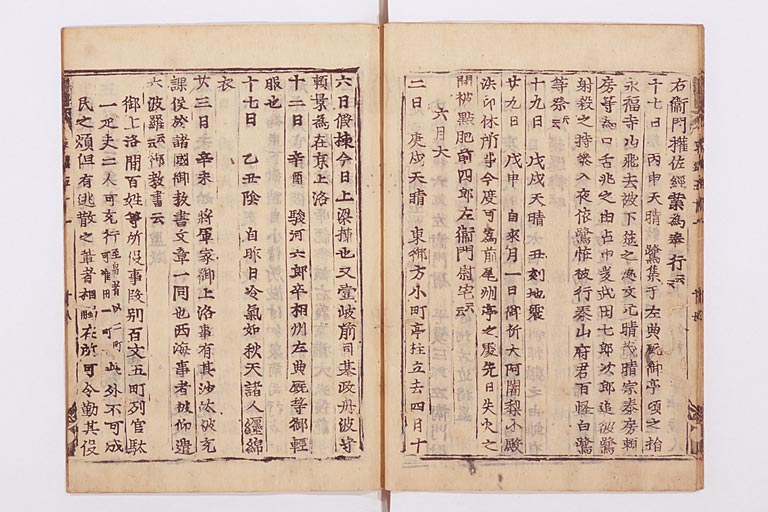 右衛門権佐經業為奉行云云
十七日 丙申 天晴 鷺集于左典厩御亭頌之指
永福寺山飛去被下筮之處文元晴茂晴宗泰房頼
房等為口舌兆之由占申之武田七郎次郎追彼鷺
射殺之時業入夜依鷺恠被行泰山府君百恠白鷺
等祭云云
十九日 戊戌 天晴 丑刻地震
廿九日 戊申 自來月一日御祈大阿闍梨不殿
法印休所事今度可為前尾州亭之處先日失火之
間被點肥前四郎左衛門尉宅云云
六月大
二日 庚戌 天晴 東御方小町亭柱立去四月十
六日假棟今日上梁棟也又壹岐前司基政丹波守
頼景為在京上洛
十二日 辛酉 駿河六郎卒相州左典厩等御輕
服也
十七日 乙丑 陰 自昨日冷氣如秋天諸人纒綿
衣
廿三日 辛未 將軍家御上洛事有其沙汰被充
課役於諸國御教書文章一同也西海事者被仰遣
六波羅云云御教書云
御上洛間百姓等所役事段別百文五町列官駄
一疋夫二人可充行 此外不可成
民之煩但有逃散之輩者相觸在所可令勤其役